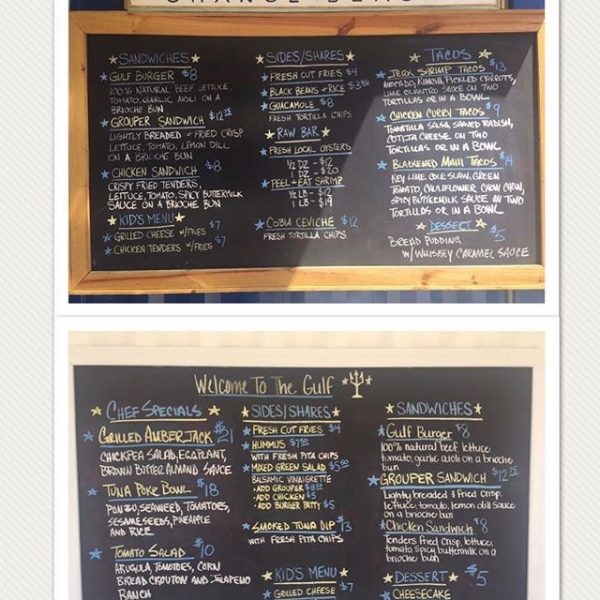 ORANGE BEAC
SANDWICHES
GULF BURGER $8
100% NATURAL BEEF, LETTUCE,
TOMATO, GARLIC AIOLI ON A
BRIOCHE BUN
GROUPER SANDWICH $12
LIGHTLY BREADED + FRIED CRISP
LETTUCE, TOMATO, LEMON DILL
ON A BRIOCHE BUN
CHICKEN SANDWICH $8
CRISPY FRIED TENDERS,
LETTUCE, TOMATO, SPICY BUTTERMILK
SAUCE ON A BRIOCHE BUN
KID'S MENU
GRILLED CHEESE W/FRIES $7
CHICKEN TENDERS W/FRIES $7
SIDES/SHARES
FRESH CUT FRIES $4
BLACK BEANS + RICE $3
GUACAMOLE $8
FRESH TORTILLA CHIPS
RAW BAR
FRESH LOCAL OYSTERS
1/2 DZ - $12
1 DZ - $20
PEEL + EAT SHRIMP
1/2 LB - $12
1 LB - $19
COBIA CEVICHE $12
FRESH TORTILLA CHIPS
TACOS
JERK SHRIMP TACOS $13
AVOCADO, KIMCHI, PICKLED CARROTS,
LIME CILANTRO SAUCE ON TWO
TORTILLAS OR IN A BOWL
CHICKEN CURRY TACOS $9
TOMATILLA SALSA, SHAVED RADISH,
COTIJA CHEESE ON TWO
TORTILLAS OR IN A BOWL
BLACKENED MAHI TACOS $14
KEY LIME COLE SLAW, GREEN
TOMATO, CAULIFLOWER CHOW CHOW,
SPICY BUTTERMILK SAUCE ON TWO
TORTILLAS OR IN A BOWL
DESSERT
BREAD PUDDING $5
W/WHISKEY CARAMEL SAUCE
Welcome To The Gulf
CHEF SPECIALS
GRILLED AMBERJACK $21
CHICKPEA SALAD, EGGPLANT,
BROWN BUTTER ALMOND SAUCE
TUNA POKE BOWL $18
PONZU, SEAWEED, TOMATOES,
SESAME SEEDS, PINEAPPLE
AND RICE
TOMATO SALAD $10
ARUGULA, TOMATOES, CORN
BREAD CROUTON AND JALAPENO
RANCH
SIDES/SHARES
FRESH CUT FRIES $4
HUMMUS $7
WITH FRESH PITA CHIPS
MIXED GREEN SALAD $5
BALSAMIC VINAIGRETTE
- ADD GROUPER $8
- ADD CHICKEN $5
- ADD BURGER PATTY $5
SMOKED TUNA DIP $13
WITH FRESH PITA CHIPS
KID'S MENU
GRILLED CHEESE $7
SANDWICHES
Gulf Burger $8
100% natural beef lettuce
tomato, garlic aioli on a brioche
bun
GROUPER SANDWICH $12
Lightly breaded & fried crisp.
lettuce, tomato, lemon dill sauce
on a brioche bun
Chicken Sandwich $8
Tenders Fried Crisp, lettuce,
tomato, spicy buttermilk on a
brioche bun
DESSERT $5
CHEESECAKE